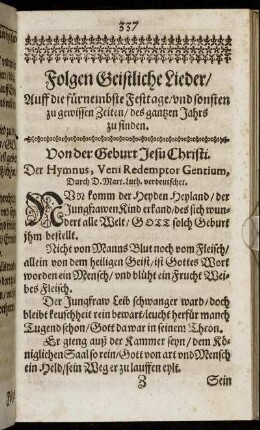 337
Folgen Geistliche Lieder/
Auff die fürnembste Festtage/vnd sonsten
zu gewissen Zeiten/des gantzen Jahrs
zu finden.
Von der Geburt Jesu Christi.
Der Hymnus, Veni Redemptor Gentium,
Durch D. Mart. Luth. verdeutschet.
NVN komm der Heyden Heyland/der
Jungfrawen Kind erkand/des sich wun-
dert alle Welt/GOTT solch Geburt
jhm bestellt.
Nicht von Manns Blut noch vom Fleisch/
allein von dem heiligen Geist/ist Gottes Wort
worden ein Mensch/vnd blüht ein Frucht Wei-
bes Fleisch.
Der Jungfraw Leib schwanger ward/doch
bleibt keuschheit rein bewart/leucht herfür manch
Tugend schon/Gott da war in seinem Thron.
Er gieng auß der Kammer seyn/dem Kö-
niglichen Saal so rein/Gott von art vnd Mensch
ein Held/sein Weg er zu lauffen eylt.
Z
Sein